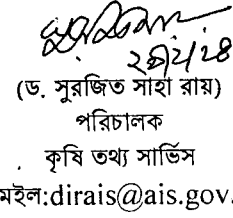 ২৪/২/২৪
(ড. সুরজিত সাহা রায়)
পরিচালক
কৃষি তথ্য সার্ভিস
মইল:dirais@ais.gov.